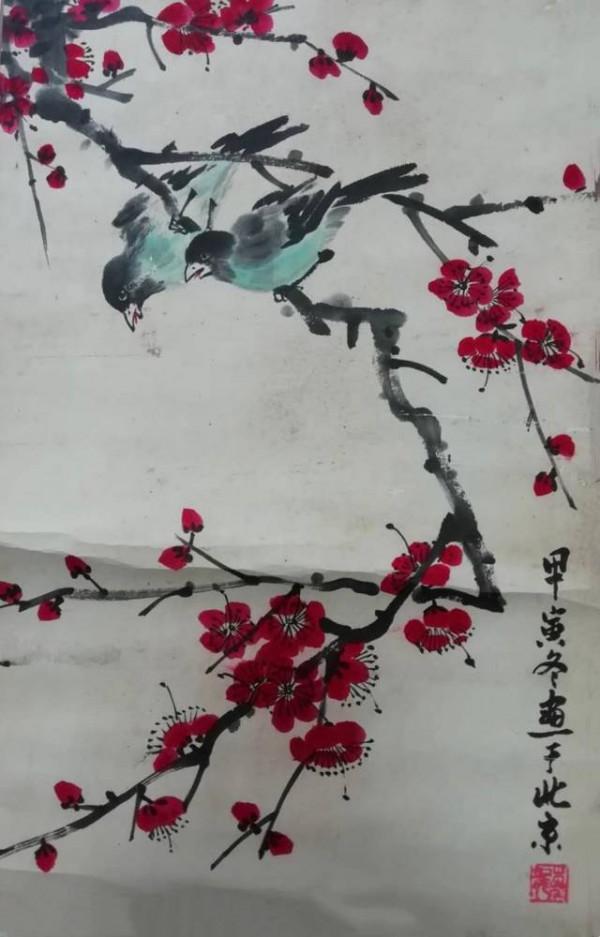 甲寅冬画于北京